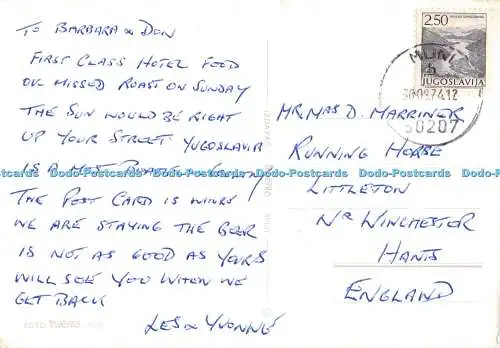 TO BARBARA & DON
FIRST CLASS HOTEL FOOD
OK MISSED ROAST ON SUNDAY
THE SUN WOULD BE RIGHT
UP YOUR STREET YUGOSLAVIA
IS A MOST
THE POST CARD IS WHERE
WE ARE STAYING THE BEER
IS NOT AS GOOD AS YOURS
WILL SEE YOU WHEN WE
GET BACK
LES & YVONNE
2.50
JUGOSLAVIJA
50207
MR. MRS D. MARRINER
RUNNING HORSE
LITTLETON
NR WINCHESTER
HANTS
ENGLAND
Dodo-Postcards Dodo-Postcards Dodo-Postcards Dodo-Postcards Dodo-Postcards